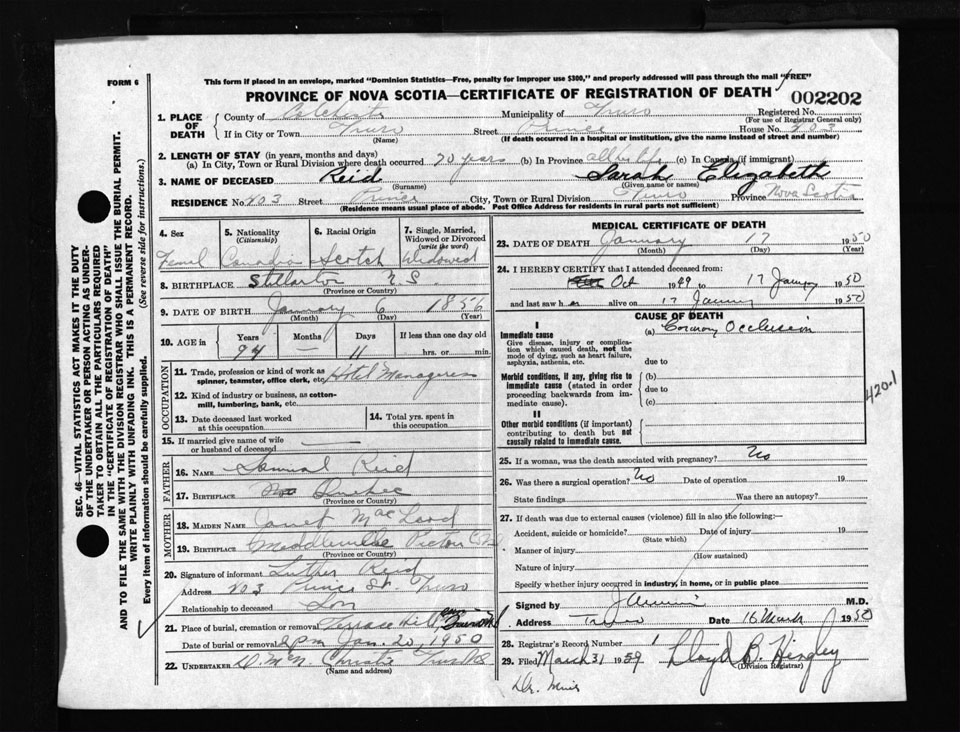 This form if placed in an envelope, marked "Dominion Statistics—Free, penalty for improper use $300," and properly addressed will pass through the mail "FREE"
FORM 6
PROVINCE OF NOVA SCOTIA—CERTIFICATE OF REGISTRATION OF DEATH
002202
1. PLACE OF DEATH
County of Colchester Municipality of Truro Registered No.
(For use of Registrar General only)
If in City or Town Truro Street Prince House No. 203
(Name) (If death occurred in a hospital or institution, give the name instead of street and number)
2. LENGTH OF STAY (in years, months and days)
(a) In City, Town or Rural Division where death occurred 70 years (b) In Province all her life (c) In Canada (if immigrant)
3. NAME OF DECEASED Reid Sarah Elizabeth
(Surname) (Given name or names)
RESIDENCE No. 203 Street Prince City, Town or Rural Division Truro Province Nova Scotia
(Residence means usual place of abode. Post Office Address for residents in rural parts not sufficient)
4. Sex 5. Nationality (Citizenship) 6. Racial Origin 7. Single, Married, Widowed or Divorced (write the word)
Canadian Scotch Widowed
8. BIRTHPLACE Stellarton N.S.
(Province or Country)
9. DATE OF BIRTH January 6 1856
(Month) (Day) (Year)
10. AGE in Years Months Days If less than one day old
94 — 11 hrs. or min.
OCCUPATION
11. Trade, profession or kind of work as spinner, teamster, office clerk, etc. Hotel Manageress
12. Kind of industry or business, as cotton-mill, lumbering, bank, etc.
13. Date deceased last worked at this occupation
14. Total yrs. spent in this occupation
15. If married give name of wife or husband of deceased
FATHER
16. NAME Samual Reid
17. BIRTHPLACE Quebec
(Province or Country)
MOTHER
18. MAIDEN NAME Janet MacLeod
19. BIRTHPLACE Pictou
(Province or Country)
20. Signature of informant Luther Reid
Address 203 Prince St. Truro
Relationship to deceased Son
21. Place of burial, cremation or removal Terrace Hill
Date of burial or removal 2 pm Jan. 20, 1950
22. UNDERTAKER Christie Truro NS
(Name and address)
MEDICAL CERTIFICATE OF DEATH
23. DATE OF DEATH January 17 1950
(Month) (Day) (Year)
24. I HEREBY CERTIFY that I attended deceased from:
Oct 1949 to 17 January 1950
and last saw h er alive on 17 January 1950
CAUSE OF DEATH
I
Immediate cause (a) Coronary Occlusion
Give disease, injury or complication which caused death, not the mode of dying, such as heart failure, asphyxia, asthenia, etc.
due to
Morbid conditions, if any, giving rise to immediate cause (stated in order proceeding backwards from immediate cause).
(b)
due to
(c)
II
Other morbid conditions (if important) contributing to death but not causally related to immediate cause.
420.1
25. If a woman, was the death associated with pregnancy? No
26. Was there a surgical operation? No Date of operation 19
State findings Was there an autopsy?
27. If death was due to external causes (violence) fill in also the following:—
Accident, suicide or homicide? Date of injury 19
(State which)
Manner of injury
(How sustained)
Nature of injury
Specify whether injury occurred in industry, in home, or in public place
Signed by M.D.
Address Truro Date 16 March 1950
28. Registrar's Record Number 1
29. Filed March 31 1959 Lloyd B. Hingley
(Division Registrar)
Dr. Muir
SEC. 46—VITAL STATISTICS ACT MAKES IT THE DUTY
OF THE UNDERTAKER OR PERSON ACTING AS UNDER-
TAKER TO OBTAIN ALL THE PARTICULARS REQUIRED
IN THE "CERTIFICATE OF REGISTRATION OF DEATH"
AND TO FILE THE SAME WITH THE DIVISION REGISTRAR WHO SHALL ISSUE THE BURIAL PERMIT.
WRITE PLAINLY WITH UNFADING INK. THIS IS A PERMANENT RECORD.
Every item of information should be carefully supplied. (See reverse side for instructions.)